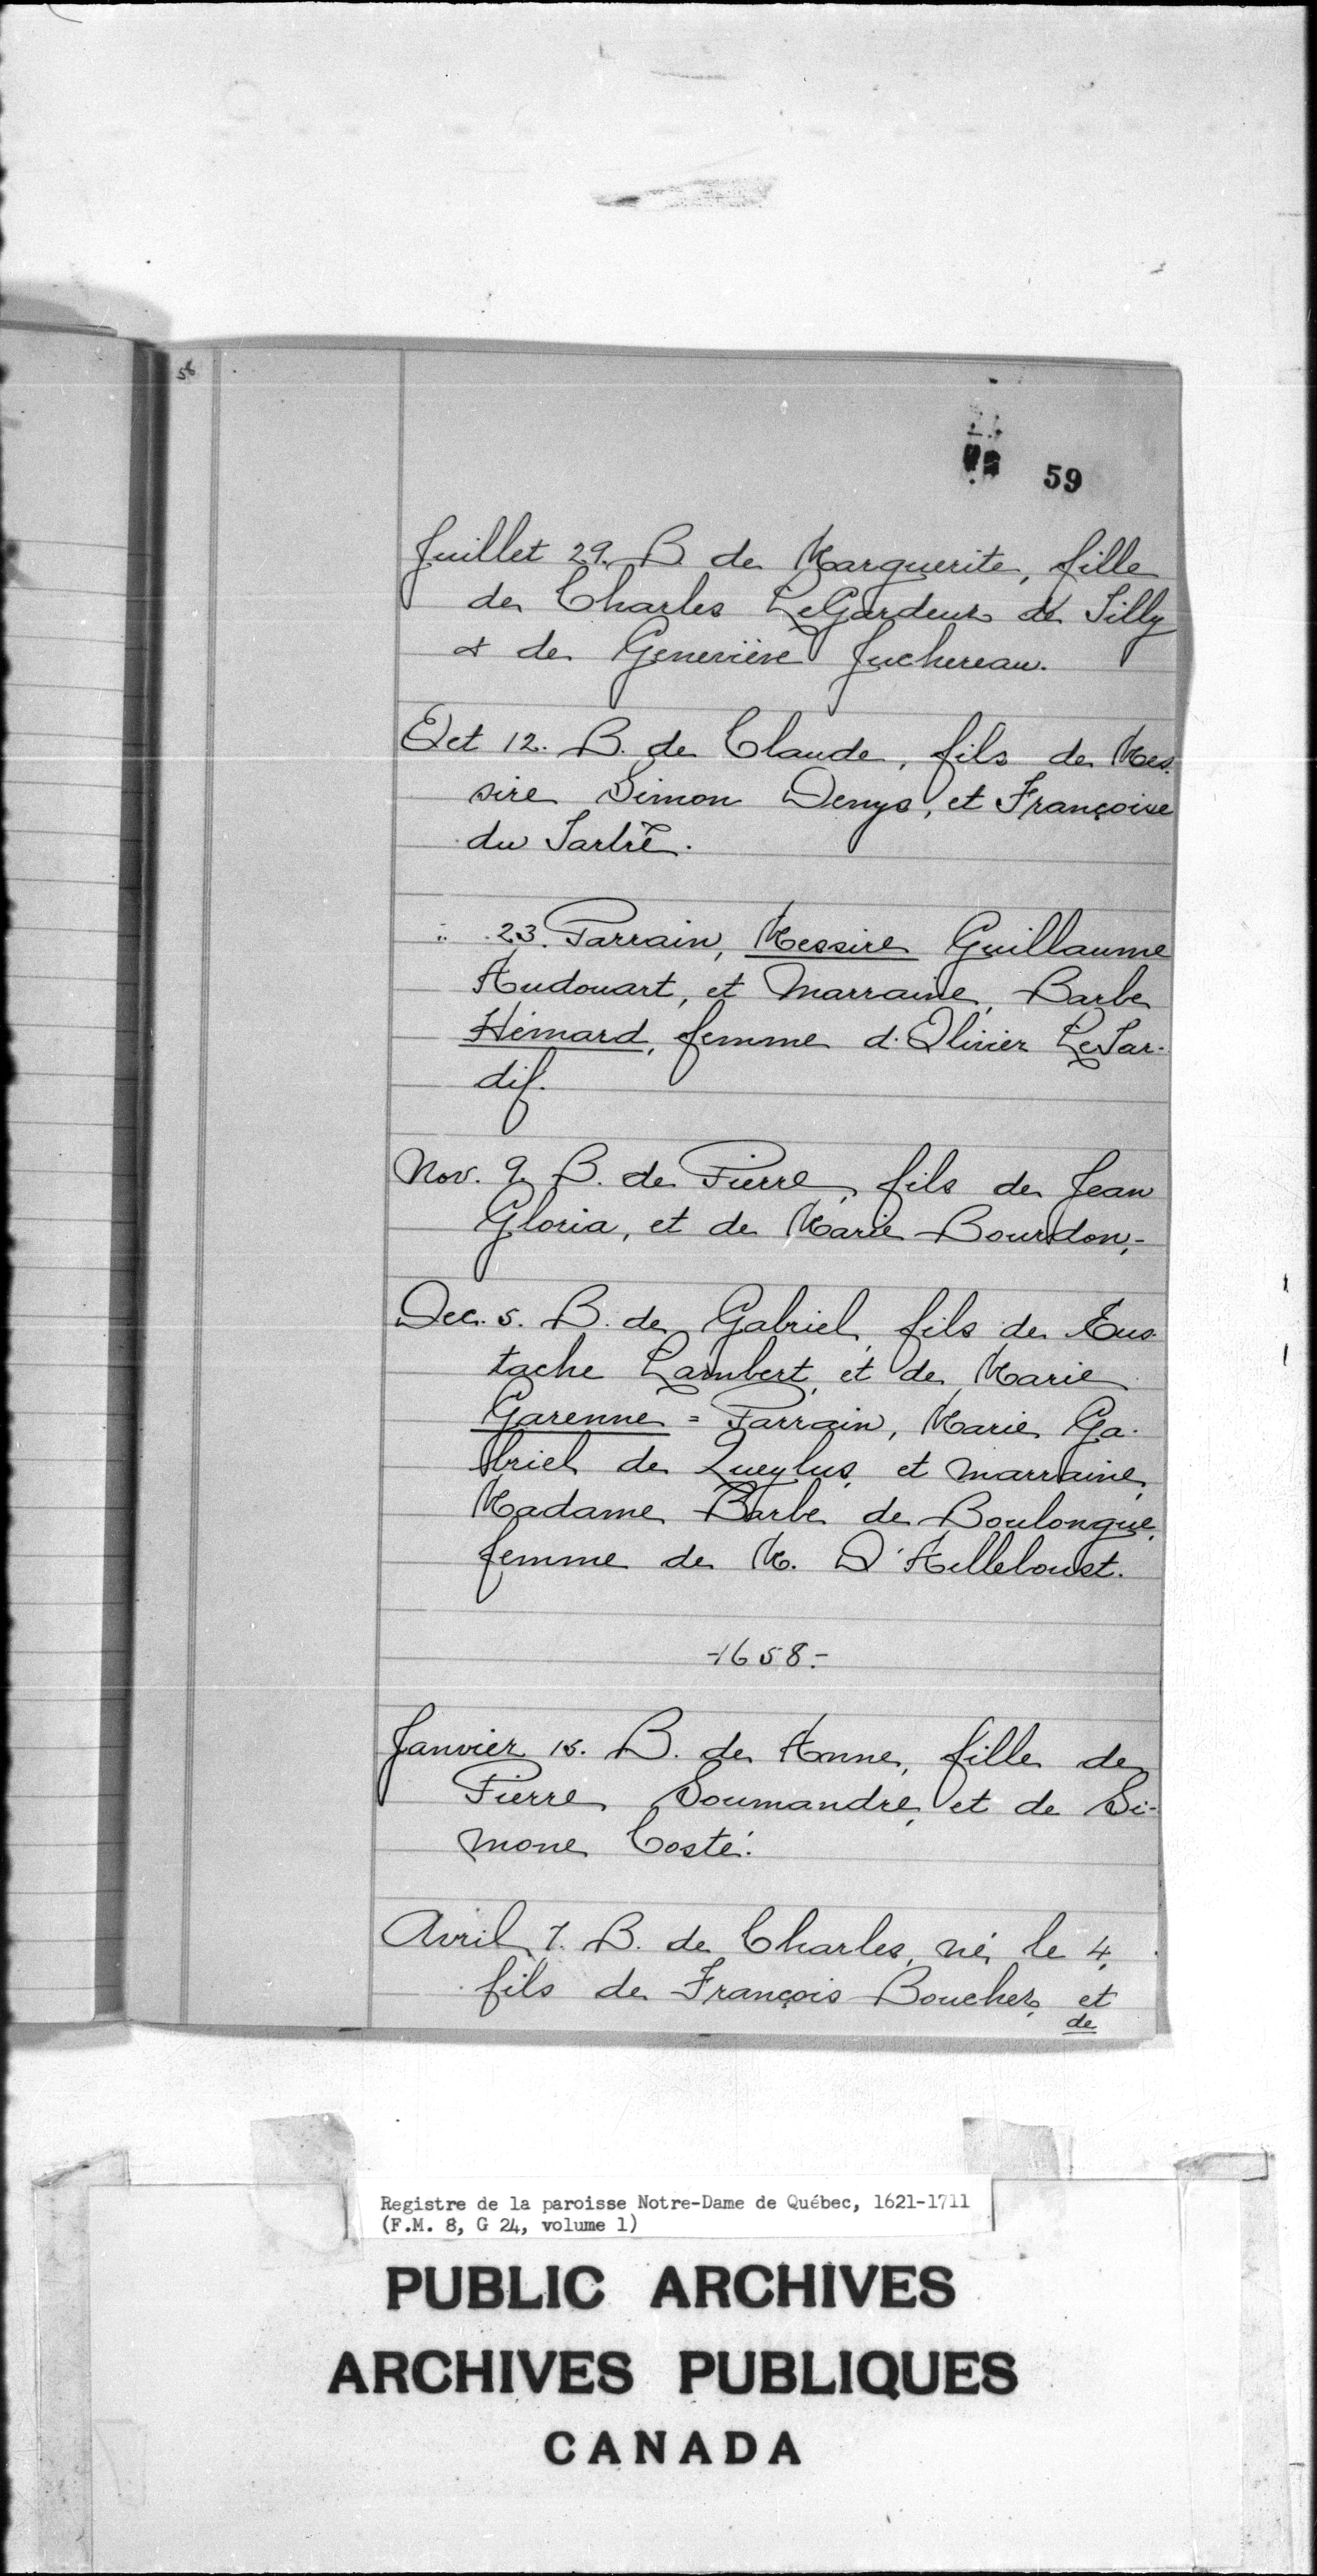 56
59
Juillet 29. B de Marguerite, fille
de Charles LeGardeur de Tilly
& de Geneviève Juchereau.
Oct 12. B. de Claude, fils de Mes.
sire Simon Denys, et Françoise
du Tartré.
" 23. Parrain, Messire Guillaume
Audouart, et Marraine, Barbe
Hémard, femme d'Olivier LeTar-
dif.
Nov. 9. B. de Pierre, fils de Jean
Gloria, et de Marie Bourdon,-
Dec. 5. B. de Gabriel, fils de Eus-
tache Lambert, et de Marie
Garenne = Parrain, Marie Ga-
briel de Queylus, et marraine,
Madame Barbe de Boulongue,
femme de M. D'Ailleboust.
-1658.-
Janvier 15. B. de Anne, fille de
Pierre Soumandre, et de Si-
mone Costé.
Avril 7. B. de Charles, né le 4,
fils de François Boucher, et
de
Registre de la paroisse Notre-Dame de Québec, 1621-1711
(F.M. 8, G 24, volume 1)
PUBLIC ARCHIVES
ARCHIVES PUBLIQUES
CANADA